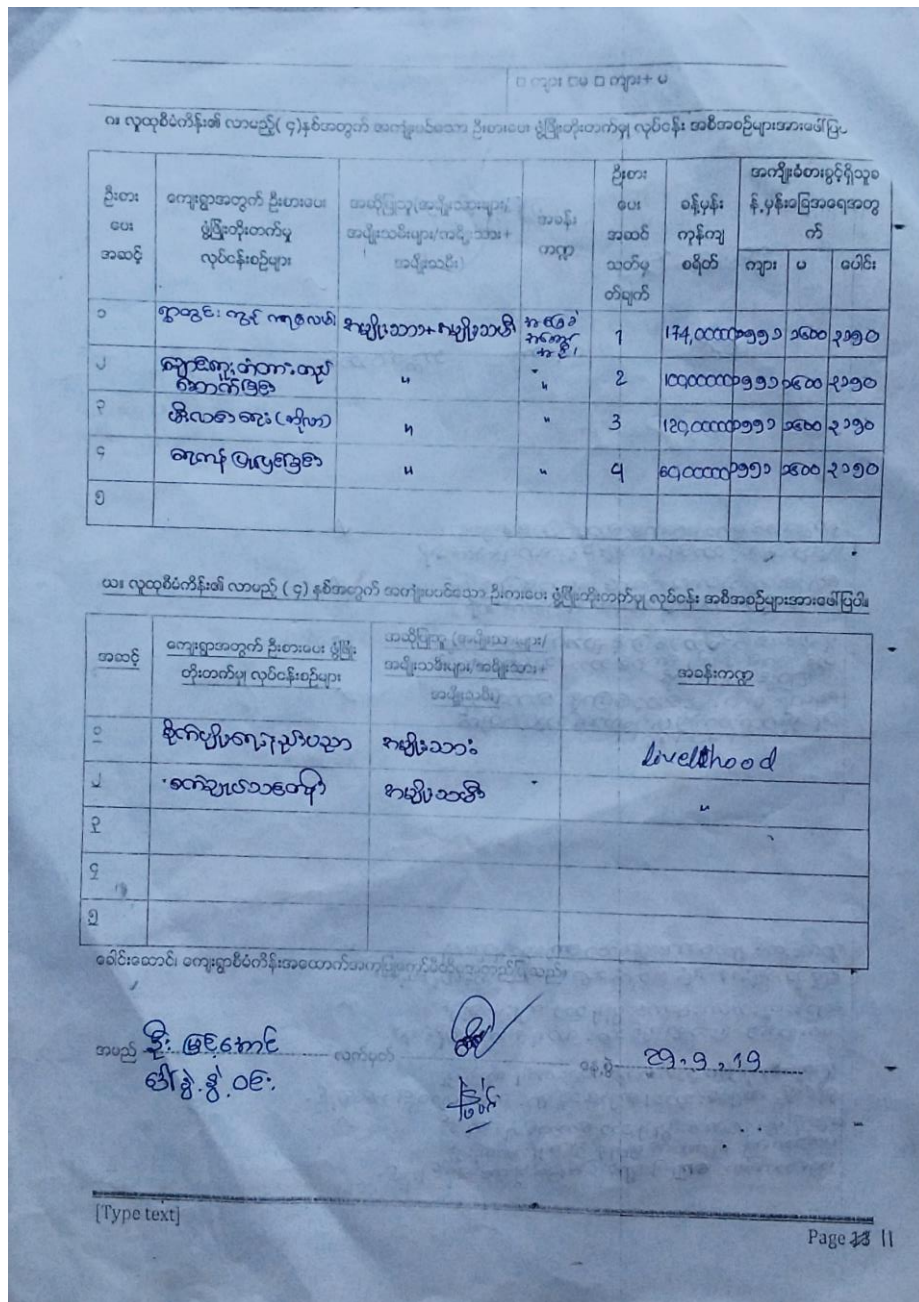 □ ကျား □မ □ ကျား+ မ
ဂ။ လူထုစီမံကိန်း၏ လာမည့်( ၄)နှစ်အတွက် အကျုံးဝင်သော ဦးစားပေး ဖွံ့ဖြိုးတိုးတက်မှု လုပ်ငန်း အစီအစဉ်များအားဖော်ပြပ
ဦးစားပေးအဆင့်
ကျေးရွာအတွက် ဦးစားပေး ဖွံ့ဖြိုးတိုးတက်မှု လုပ်ငန်းစဉ်များ
အဆိုပြုသူ(အမျိုးသားများ/ အမျိုးသမီးများ/အမျိုးသား+ အမျိုးသမီး)
အခန်းကဏ္ဍ
ဦးစားပေးအဆင့်သတ်မှတ်ချက်
ခန့်မှန်းကုန်ကျစရိတ်
အကျိုးခံစားခွင့်ရှိသူခန့်မှန်းခြေအရေအတွက်
ကျား မ ပေါင်း
၁ ရွာတွင်း ကွန်ကရစ်လမ်း အမျိုးသား+အမျိုးသမီး အခြေခံအဆောက်အဦ 1 174,00000 ၁၅၅၁ ၁၆၀၀ ၃၁၅၀
၂ တံတားတည်ဆောက်ခြင်း " " 2 100,00000 ၁၅၅၁ ၁၆၀၀ ၃၁၅၀
၃ မီးလင်းရေး " " 3 120,00000 ၁၅၅၁ ၁၆၀၀ ၃၁၅၀
၄ ရေကန်ပြုပြင်ခြင်း " " 4 60,00000 ၁၅၅၁ ၁၆၀၀ ၃၁၅၀
၅
ဃ။ လူထုစီမံကိန်း၏ လာမည့် ( ၄) နှစ်အတွက် အကျုံးမဝင်သော ဦးစားပေး ဖွံ့ဖြိုးတိုးတက်မှု လုပ်ငန်း အစီအစဉ်များအားဖော်ပြပါ။
အဆင့်
ကျေးရွာအတွက် ဦးစားပေး ဖွံ့ဖြိုး တိုးတက်မှု လုပ်ငန်းစဉ်များ
အဆိုပြုသူ (အမျိုးသားများ/ အမျိုးသမီးများ/အမျိုးသား+ အမျိုးသမီး)
အခန်းကဏ္ဍ
၁ စိုက်ပျိုးရေးနည်းပညာ အမျိုးသား Livelihood
၂ စက်ချုပ်သင်တန်း အမျိုးသမီး "
၃
၄
၅
ခေါင်းဆောင်၊ ကျေးရွာစီမံကိန်းအထောက်အကူပြုကော်မတီ
အမည် ဦးမြင့်အောင် လက်မှတ် နေ့စွဲ 29.9.19
ဒေါ်နွဲ့နွဲ့ဝင်း
[Type text]
Page 13 11